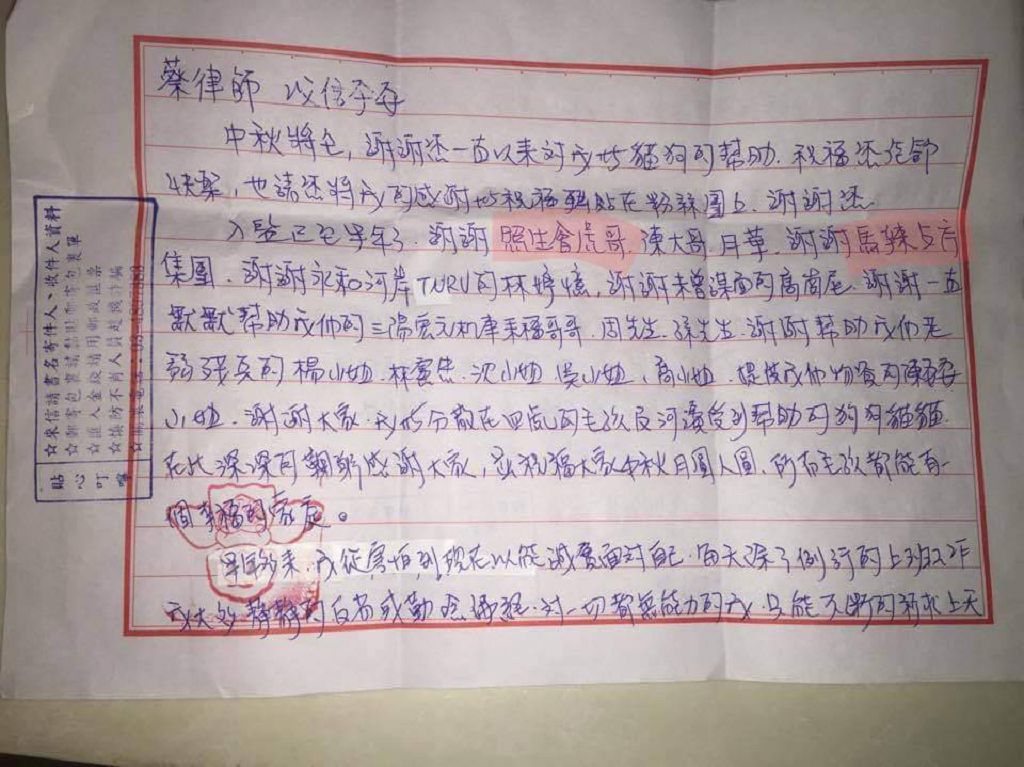 蔡律師 以信平安
中秋將至,謝謝您一直以來對我與貓狗的幫助.祝福您佳節
快樂,也請您將我的感謝與祝福轉貼在粉絲團上.謝謝您
入監已至半年了.謝謝照生會虎哥.陳大哥.月華.謝謝馬辣与店
集團.謝謝永和河岸TURU的林婷憶,謝謝未曾謀面的高茵尾.謝謝一直
默默幫助我们的三陽宏元机車禾福哥哥.周先生.孫先生.謝謝幫助我们老
弱殘兵的楊小姐.林,沈小姐 吳小姐,高小姐.提拔我们物資的陳
小姐.謝謝大家.我與分散在四處的毛孩及河邊受到幫助的狗狗貓貓.
在此深深的鞠躬感謝大家,並祝福大家中秋月圓人圓.所有毛孩都能有一
個幸福的家庭。
半年多來,我從害怕到現在以能誠實面對自己.每天除了例行的上班工作
我大多靜靜的自省或勤唸佛經.對一切都無能力的我.只能不斷的祈求上天
☆來信請書名寄件人、收件人資料
☆郵寄包裹請黏附郵寄包裹單
☆匯入金錢請用郵政匯票
☆慎防不肖人員趁機詐騙
貼心叮嚀